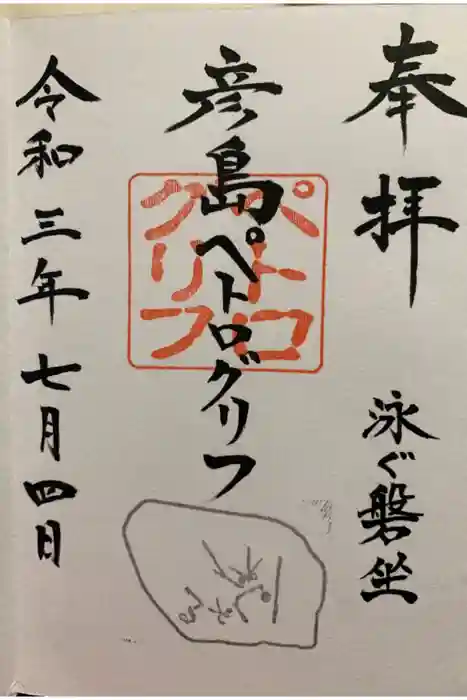 奉拝
泳ぐ磐坐
彦島ペトログリフ
ペトロ
グリフ
令和三年七月四日